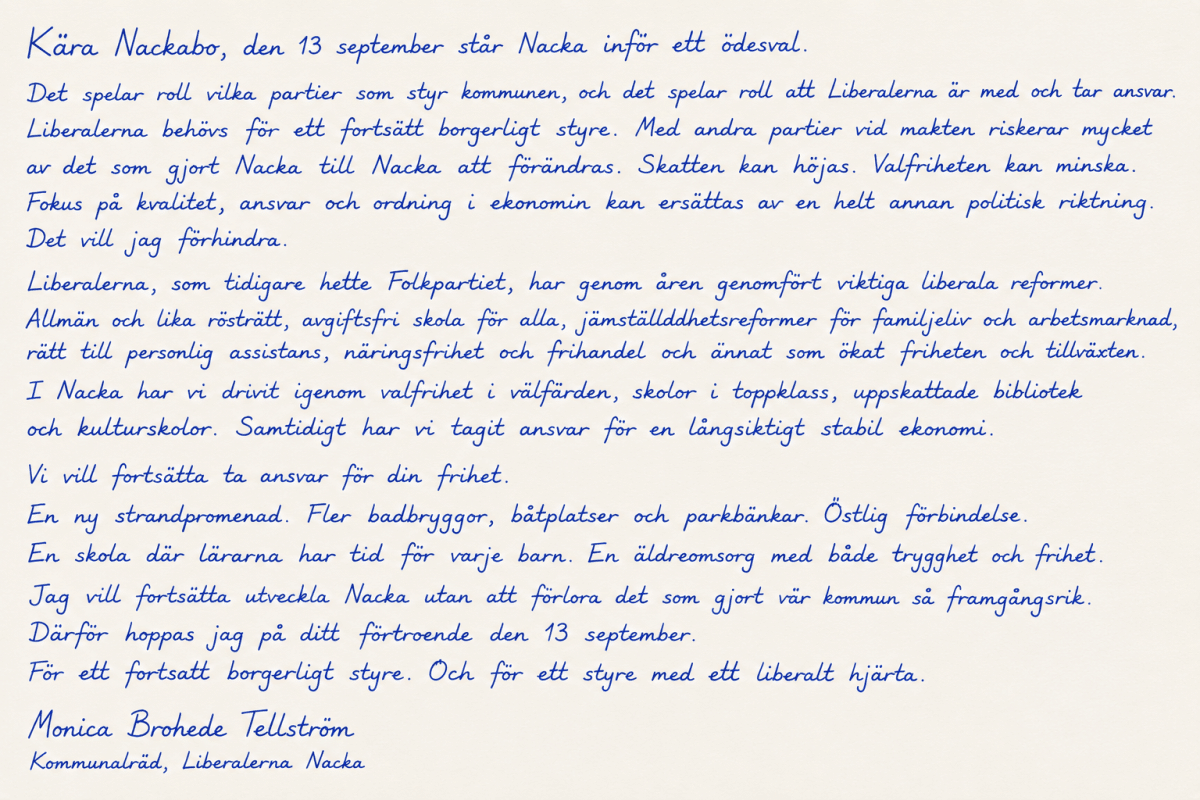 Kära Nackabo, den 13 september står Nacka inför ett ödesval.
Det spelar roll vilka partier som styr kommunen, och det spelar roll att Liberalerna är med och tar ansvar.
Liberalerna behövs för ett fortsätt borgerligt styre. Med andra partier vid makten riskerar mycket
av det som gjort Nacka till Nacka att förändras. Skatten kan höjas. Valfriheten kan minska.
Fokus på kvalitet, ansvar och ordning i ekonomin kan ersättas av en helt annan politisk riktning.
Det vill jag förhindra.
Liberalerna, som tidigare hette Folkpartiet, har genom åren genomfört viktiga liberala reformer.
Allmän och lika rösträtt, avgiftsfri skola för alla, jämställddhetsreformer för familjeliv och arbetsmarknad,
rätt till personlig assistans, näringsfrihet och frihandel och ännat som ökat friheten och tillväxten.
I Nacka har vi drivit igenom valfrihet i välfärden, skolor i toppklass, uppskattade bibliotek
och kulturskolor. Samtidigt har vi tagit ansvar för en långsiktigt stabil ekonomi.
Vi vill fortsätta ta ansvar för din frihet.
En ny strandpromenad. Fler badbryggor, båtplatser och parkbänkar. Östlig förbindelse.
En skola där lärarna har tid för varje barn. En äldreomsorg med både trygghet och frihet.
Jag vill fortsätta utveckla Nacka utan att förlora det som gjort vär kommun så framgångsrik.
Därför hoppas jag på ditt förtroende den 13 september.
För ett fortsatt borgerligt styre. Och för ett styre med ett liberalt hjärta.
Monica Brohede Tellström
Kommunalräd, Liberalerna Nacka